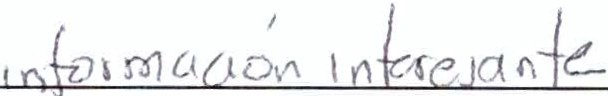 información interesante